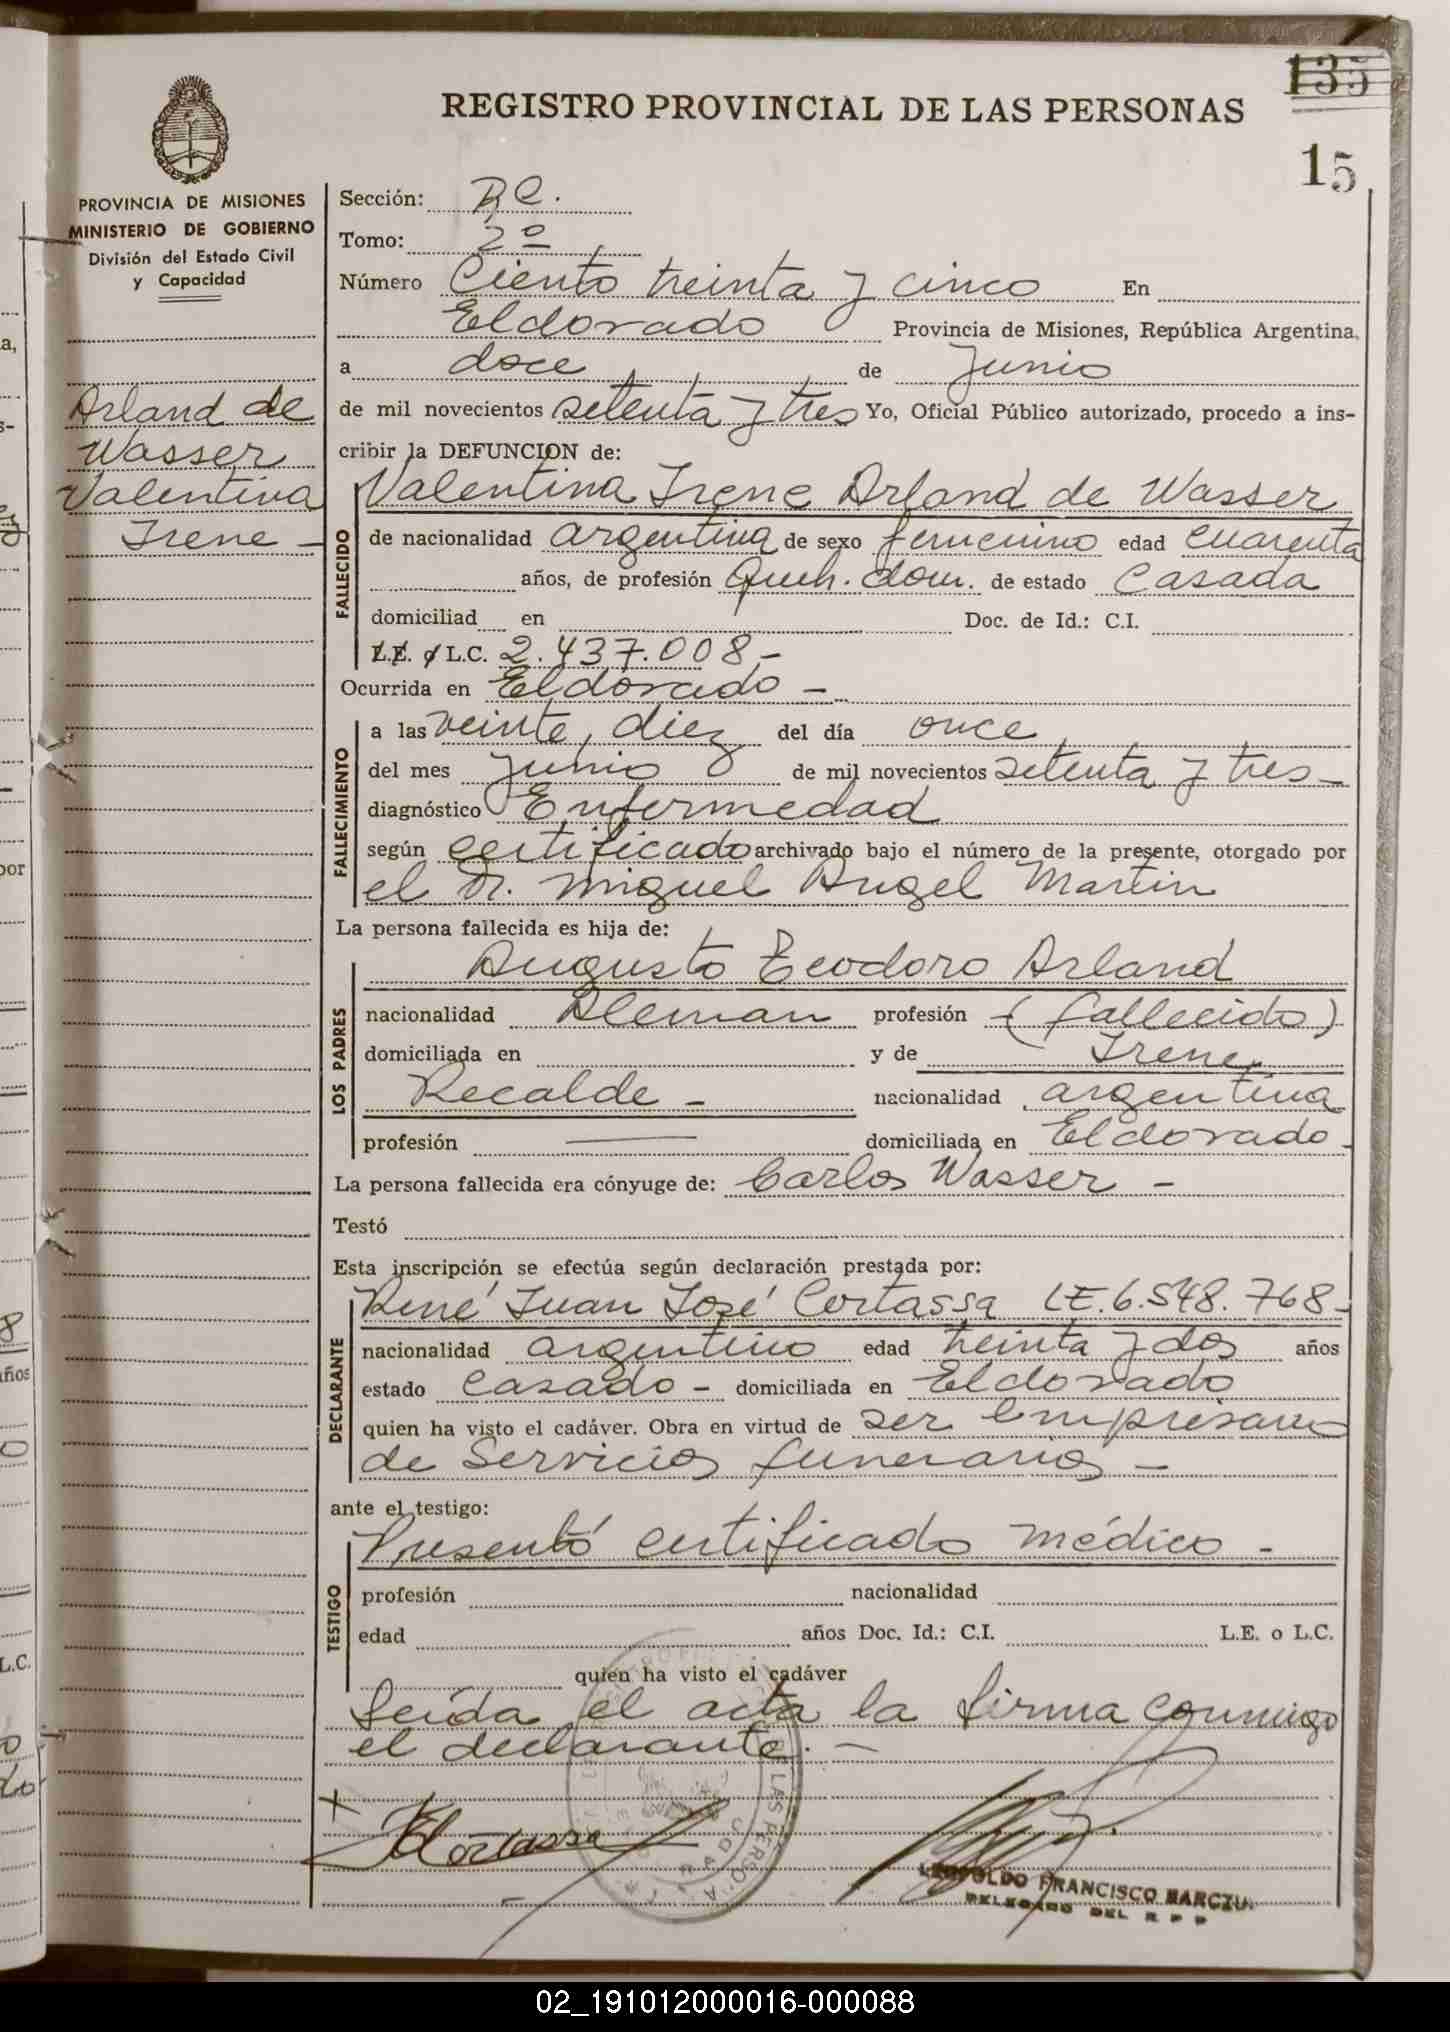 135
REGISTRO PROVINCIAL DE LAS PERSONAS
15
PROVINCIA DE MISIONES
MINISTERIO DE GOBIERNO
División del Estado Civil
y Capacidad
Arland de
Wasser
Valentina
Irene -
Sección: R C.
Tomo: 2º
Número Ciento treinta y cinco En
Eldorado Provincia de Misiones, República Argentina.
a doce de Junio
de mil novecientos setenta y tres Yo, Oficial Público autorizado, procedo a ins-
cribir la DEFUNCION de:
FALLECIDO
Valentina Irene Arland de Wasser
de nacionalidad argentina de sexo femenino edad cuarenta
años, de profesión Queh. dom. de estado Casada
domiciliad en Doc. de Id.: C.I.
L.E. o L.C. 2.437.008 -
Ocurrida en Eldorado -
FALLECIMIENTO
a las veinte, diez del día once
del mes Junio de mil novecientos setenta y tres -
diagnóstico Enfermedad
según certificado archivado bajo el número de la presente, otorgado por
el Dr. Miguel Angel Martin
La persona fallecida es hija de:
LOS PADRES
Augusto Teodoro Arland
nacionalidad Aleman profesión - (fallecido)
domiciliada en y de Irene
Recalde - nacionalidad argentina
profesión — domiciliada en Eldorado -
La persona fallecida era cónyuge de: Carlos Wasser -
Testó
Esta inscripción se efectúa según declaración prestada por:
DECLARANTE
René Juan José Cortassa LE. 6.548.768 -
nacionalidad argentino edad treinta y dos años
estado Casado - domiciliada en Eldorado
quien ha visto el cadáver. Obra en virtud de ser Empresario
de Servicios funerarios -
ante el testigo:
TESTIGO
Presentó certificado médico -
profesión nacionalidad
edad años Doc. Id.: C.I. L.E. o L.C.
quien ha visto el cadáver
Leída el acta la firma conmigo
el declarante. -
Cortassa
LEOPOLDO FRANCISCO BARCZU
DELEGADO DEL R P P
02_191012000016-000088